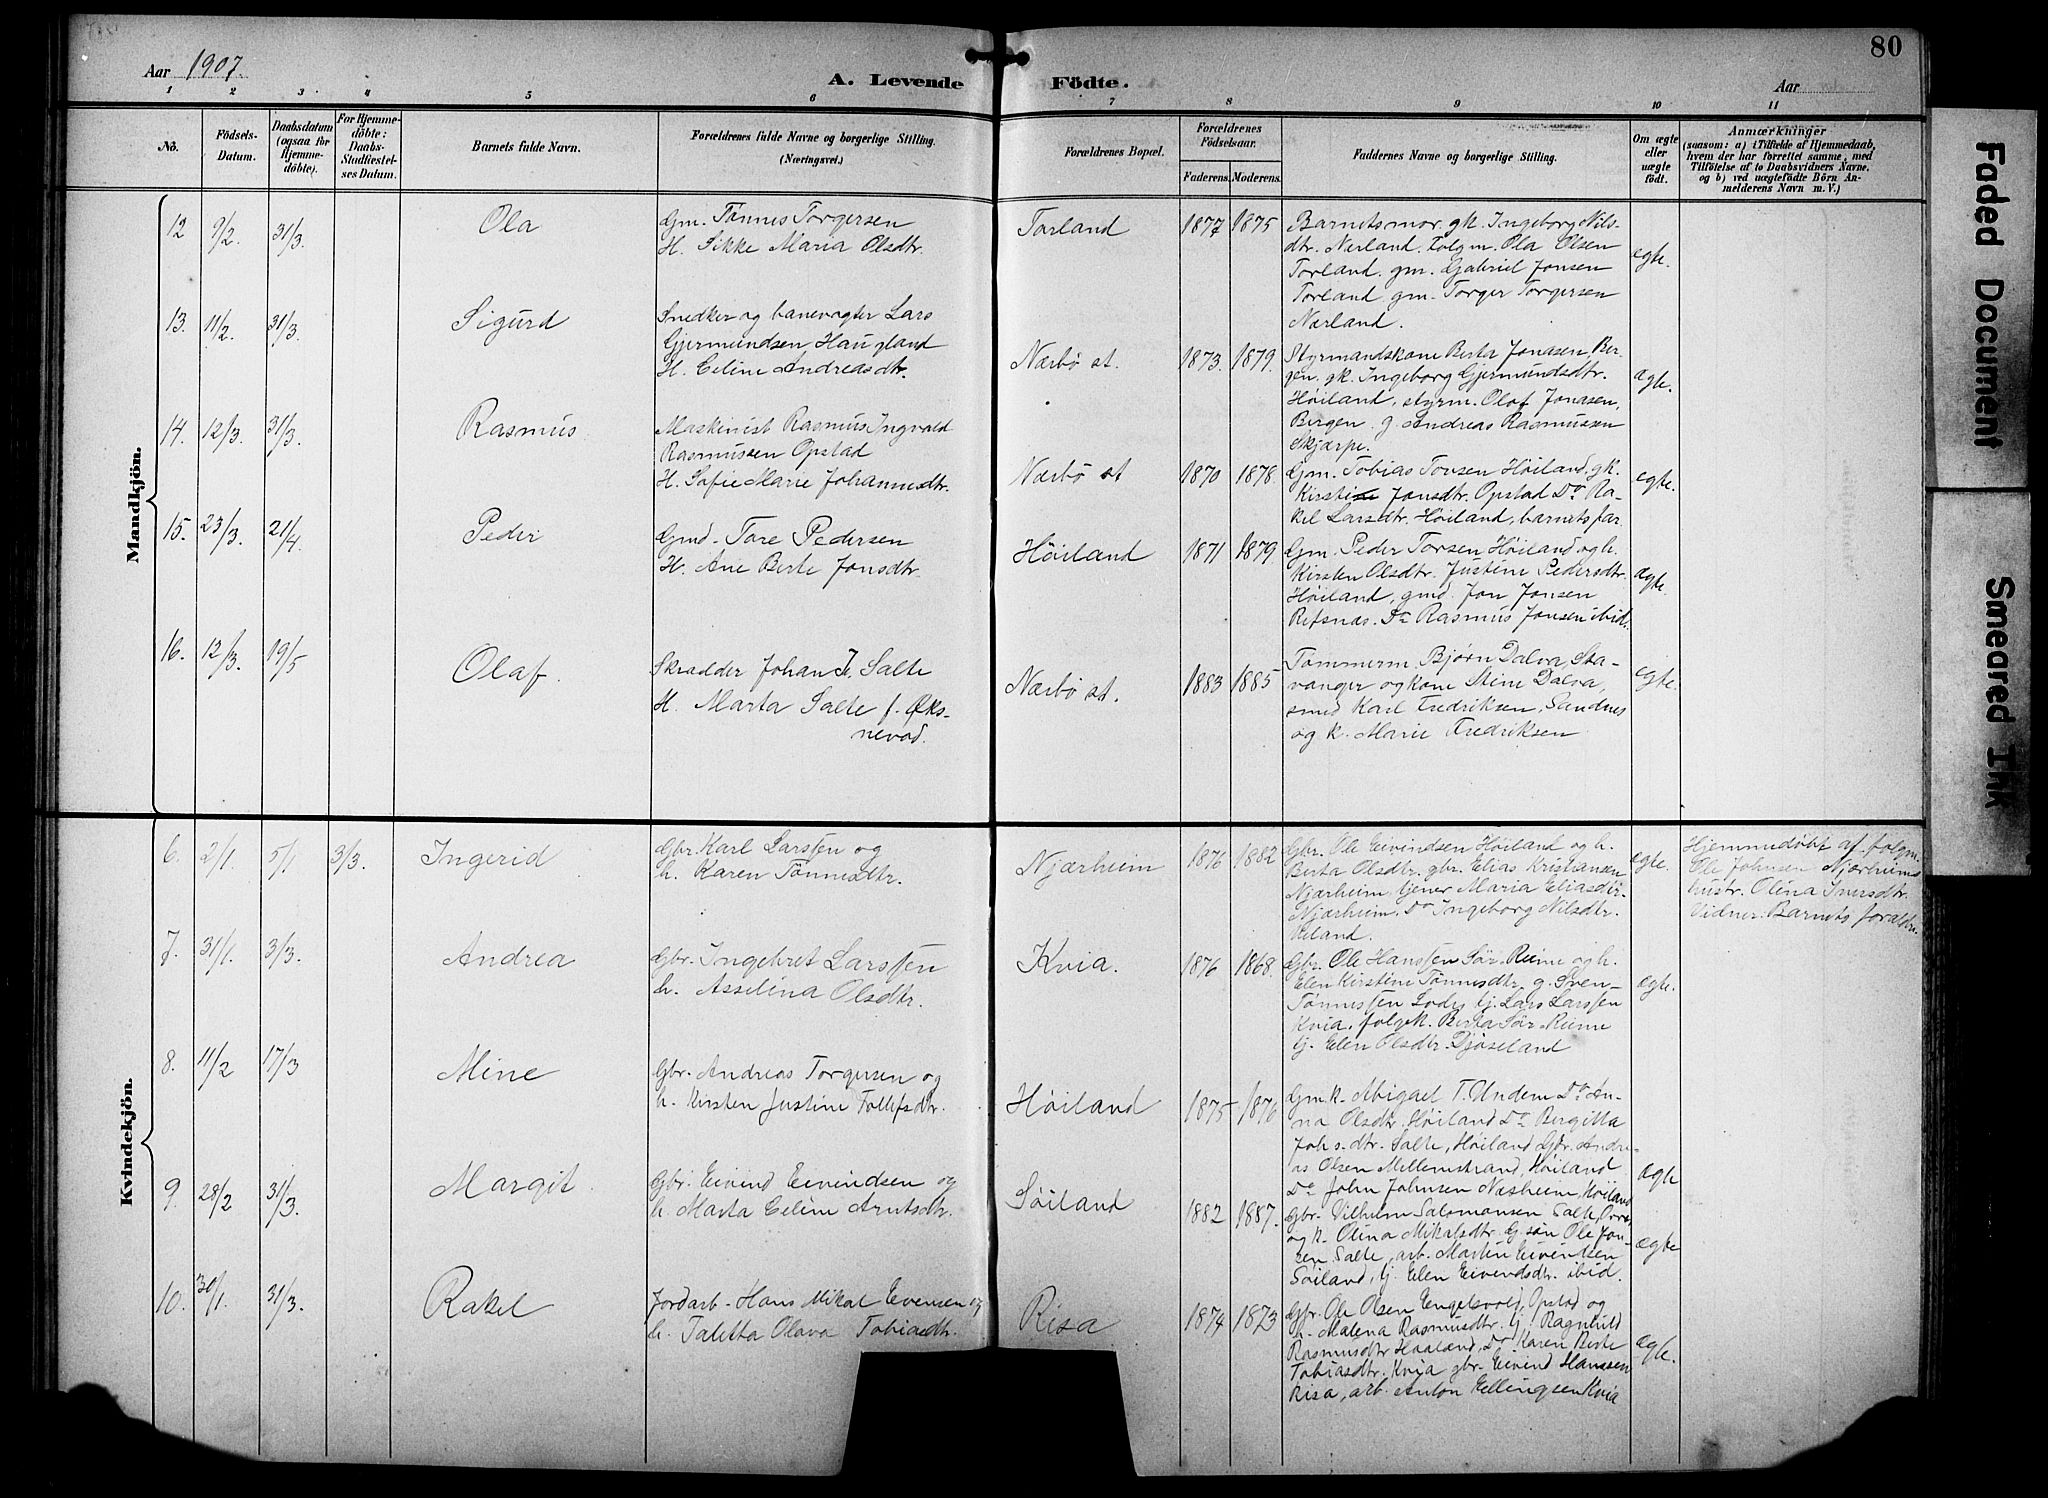 80
Aar 1907.
A. Levende Födte.
Aar
1 2 3 4 5 6 7 8 9 10 11
No.
Födsels-
Datum.
Daabsdatum
(ogsaa for
Hjemme-
döbte).
For Hjemme-
döbte:
Daabs-
Stadfæstel-
ses Datum.
Barnets fulde Navn.
Forældrenes fulde Navne og borgerlige Stilling.
(Næringsvei.)
Forældrenes Bopæl.
Forældrenes
Födselsaar.
Faderens. Moderens.
Faddernes Navne og borgerlige Stilling.
Om ægte
eller
uægte
födt.
Anmærkninger
(saasom: a) i Tilfælde af Hjemmedaab,
hvem der har forrettet samme, med
Tilföielse af to Daabsvidners Navne,
og b) ved uægtefödte Börn An-
melderens Navn m. V.)
Mandkjön.
12 9/2. 31/3. Ola
Gm. Tönnes Torgersen
H. Sikke Maria Olsdtr.
Torland 1877 1875
Barnets mor. gk. Ingeborg Nils-
dtr. Nærland. Folgm. Ola Olsen
Torland. gm. Gabriel Jonsen
Torland, gm. Torger Torgersen
Nærland.
ægte.
13. 11/2. 31/3. Sigurd
Snedker og banevogter Lars
Gjermundsen Haugland
H. Celine Andreasdtr.
Nærbö st. 1873. 1879.
Styrmandskone Berta Jonasen, Ber-
gen. gk. Ingeborg Gjermundsdtr.
Höiland, styrm. Olaf Jonasen,
Bergen. g. Andreas Rasmussen
Skjærpe.
ægte.
14. 12/3. 31/3. Rasmus
Maskinist Rasmus Ingvald
Rasmussen Opstad
H. Sofie Marie Johannesdtr.
Nærbö st 1870 1878.
Gm. Tobias Tonsen Höiland, gk.
Kirsti Jonsdtr. Opstad Do Ra-
kel Larsdtr. Höiland, barnets far.
ægte.
15. 23/3. 21/4. Peder
Gmd. Tore Pedersen
H. Ane Berte Jonsdtr.
Höiland 1871 1879
Gm. Peder Torsen Höiland og h.
Kirsten Olsdtr. Justine Pedersdtr.
Höiland, gmd. Jon Jonsen
Refsnæs. Do Rasmus Jonsen ibid.
ægte.
16. 12/3. 19/5 Olaf.
Skrædder Johan K. Salte
H. Marta Salte f. Øks-
nevad.
Nærbö st. 1883 1885
Tömmerm. Björn Dalva, Sta-
vanger og kone Stine Dalva,
smed Karl Fredriksen, Sandnes
og k. Marie Fredriksen
ægte.
Kvindekjön.
6. 2/1. 5/1 3/3. Ingerid
Gbr. Karl Larssen og
h. Karen Tönnesdtr.
Njærheim 1876 1882
Gbr. Ole Eivindsen Höiland og h.
Berta Olsdtr. gbr. Elias Kristiansen
Njærheim, tjener Maria Eliasdtr.
Njærheim. Do Ingeborg Nilsdtr.
Reiland.
ægte.
Hjemmedöbt af folgm.
Ole Johnsen Njærheims
hustr. Olina Iversdtr.
Vidner: Barnets forældre.
7. 31/1. 3/3. Andrea
Gbr. Ingebret Larssen
h. Asselina Olsdtr.
Kvia. 1876 1868.
Gbr. Ole Hanssen Sör-Reime og h.
Elen Kirstine Tönnesdtr. g. Sven
Tönnessen Lode, tj. Lars Larssen
Kvia. folgk. Berta Sör-Reime
tj. Elen Olsdtr. Djöseland
ægte.
8. 11/2 17/3 Mine
Gbr. Andreas Torgersen og
h. Kirsten Justine Tollefsdtr.
Höiland 1875 1876
Gmk. Abigael T. Undem Do An-
na Olsdtr. Höiland Do Bergitta
Johsdtr. Salte, Höiland Gbr. Andre-
as Olsen Mellemstrand, Höiland
Do John Johnsen Næsheim, Höiland
ægte
9. 28/2 31/3. Margit.
Gbr. Eivind Eivindsen og
h. Marta Celine Arntsdtr.
Söiland 1882 1887.
Gbr. Vilhelm Salomonsen Salte, Orre,
og k. Olina Mikalsdtr. Gj. sön Ole Jon-
sen Salte, arb. Martin Eivindsen
Söiland, tj. Elen Eivendsdtr. ibid.
ægte
10. 30/1. 31/3. Rakel
Jordarb. Hans Mikal Evensen og
h. Taletta Olava Tobiasdtr.
Risa 1874 1873
Gbr. Ole Olsen Engelsvold, Opstad og
h. Malena Rasmusdtr. tj. Ragnhild
Rasmusdtr Haaland, Do Karen Berte
Tobiasdtr. Kvia gbr. Eivind Hanssen
Risa, arb. Anton Ellingsen Kvia
ægte.
Faded Document
Smeared Ink